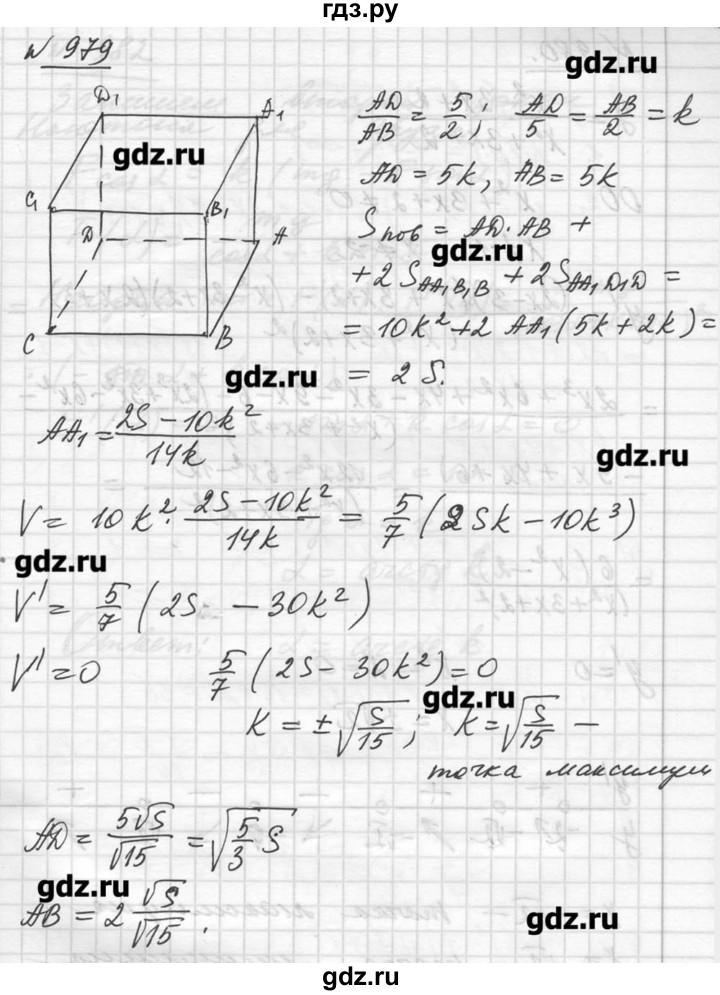 гдз.ру
№ 979
gdz.ru
D₁
A₁
C₁
B₁
D
A
C
B
gdz.ru
AD/AB = 5/2; AD/5 = AB/2 = k
AD = 5k, AB = 5k
Sпов = AD·AB +
gdz.ru
+2 S_AA₁B₁B + 2 S_AA₁D₁D =
= 10k² + 2 AA₁(5k + 2k) =
gdz.ru
= 2S.
AA₁ = (2S − 10k²)/14k
gdz.ru
V = 10k² · (2S − 10k²)/14k = 5/7 (2Sk − 10k³)
gdz.ru
V' = 5/7 (2S − 30k²)
V' = 0 5/7 (2S − 30k²) = 0
gdz.ru
K = ±√(S/15); K = √(S/15) —
точка максимум
AD = 5√S/√15 = √(5/3 S)
gdz.ru
AB = 2 √S/√15.
gdz.ru
gdz.ru